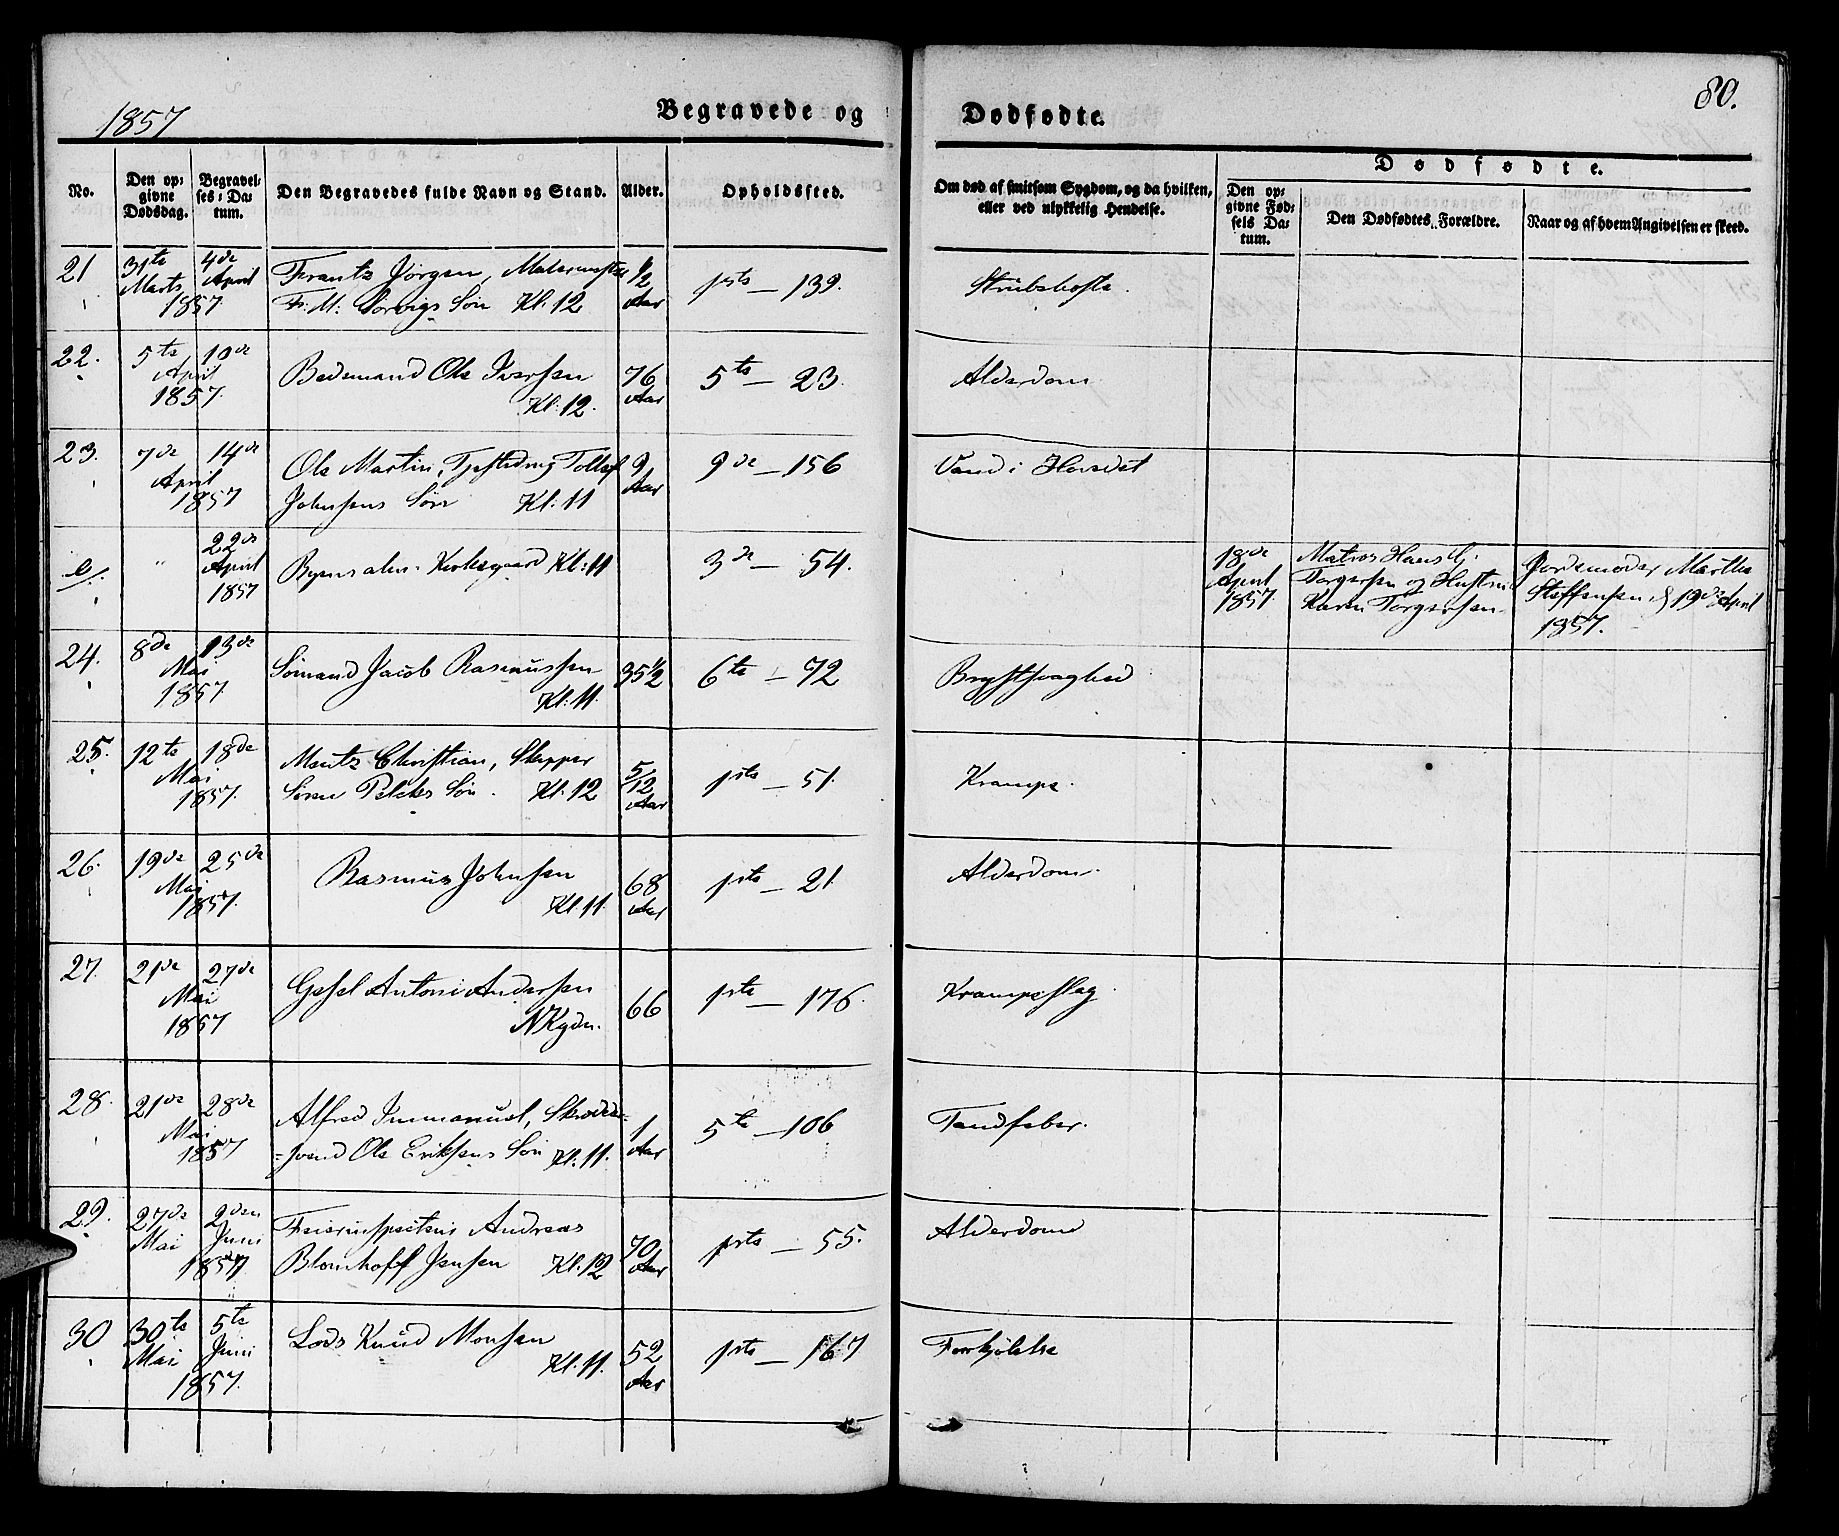 1857
Begravede og
Dødfødte.
80.
No.
Den op-
givne
Dødsdag.
Begravel-
ses-Da-
tum.
Den Begravedes fulde Navn og Stand.
Alder.
Opholdssted.
Om død af smitsom Sygdom, og da hvilken,
eller ved ulykkelig Hendelse.
Dødfødte.
Den op-
givne Fød-
sels Da-
tum.
Den Dødfødtes Forældre.
Naar og af hvem Angivelsen er skeed.
21 31te Marts 4de April 1857
Frantz Jørgen, Malermester
Fr. M. Sørvigs Søn Kl: 12
1/2 Aar
1ste — 139.
Strubehoste.
22. 5te 10de April 1857.
Bedemand Ole Iversen
Kl: 12.
76 Aar
5te — 23.
Alderdom
23. 7de 14de April 1857
Ole Martin, Tollef
Johnsens Søn Kl: 11
9 Aar
9de — 156
Vand i Hovedet
" 22de April 1857
Byens alm. Kirkegaard Kl: 11
3de — 54.
18de April 1857.
Matros Hans
Torgersen og Hustru
Karen Torgersen
Jordemoder Marthe
Steffensen, d 19de April
1857.
24. 8de 13de Mai 1857
Sømand Jacob Rasmussen
Kl: 11.
35 1/2
6te — 72
Brystsvaghed
25. 12te 18de Mai 1857.
Mentz Christian, Skipper
Søren Søn. Kl: 12
5/12 Aar
1ste — 51.
Krampe.
26. 19de 25de Mai 1857.
Rasmus Johnsen
Kl: 11.
68 Aar
1ste — 21.
Alderdom.
27. 21de 27de Mai 1857
Gesel Antoni Andersen
66
1ste — 176.
Krampeslag.
28. 21de 28de Mai 1857
Alfred Immanuel, Skrædder=
=svend Ole Eriksens Søn Kl: 11.
1 Aar
5te — 106
Tandfeber.
29. 27de Mai 2den Juni 1857
Feierinspecteur Andreas
Blomhoff Jensen Kl: 12
70 Aar
1ste — 55.
Alderdom
30 30te Mai 5te Juni 1857.
Lods Knud Monsen
Kl: 11.
52 Aar
1ste — 167
Forkjølelse